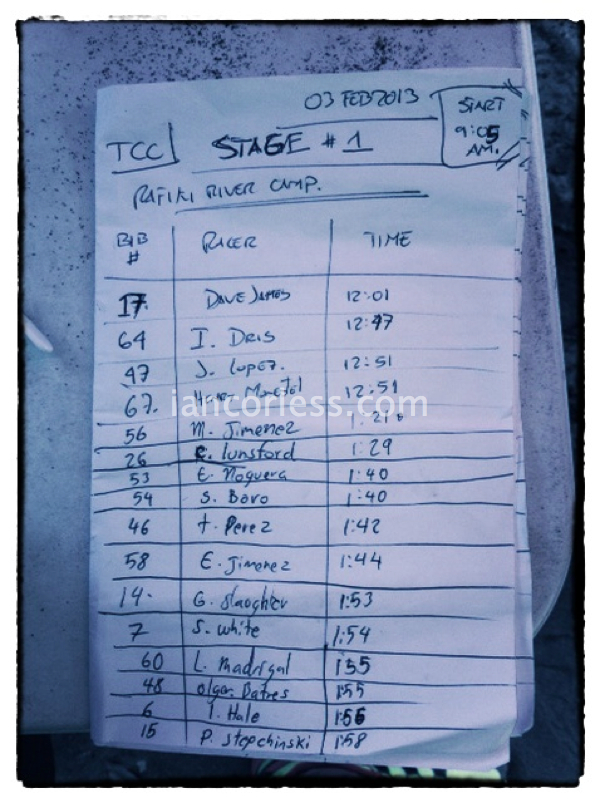 03 FEB 2013
START
9:05
AM.
TCC
STAGE # 1
RAFIKI RIVER CAMP.
BIB
#
RACER
TIME
17. DAVE JAMES 12:01
64 I. DRIS 12:47
47 J. LOPEZ. 12:51
67. 12:51
iancorless.com
56 M. Jimenez 1:21
26 C. lunsford 1:29
53 E. Noguera 1:40
54 S. Bovo 1:40
46 t. Perez 1:42
58 E. Jimenez 1:44
14. G. Slaoghter 1:53
7 S. white 1:54
60 L. Madrigal 1:55
48 olga. Batres 1:55
6 I. Hale 1:56
15 P. Stopchinski 1:58